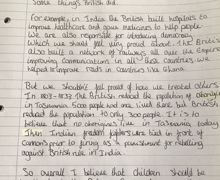 Some things British did.
For example, in India the British built hospitals to
improve healthcare and gave medicines to help people.
We are also responsible for introducing democracy
which we should feel very proud about. The British
also built a network of railways all over the Empire
improving communication in all these countries. We
helped to improve roads in countries like Ghana.
But we shouldn't feel proud of how we treated others.
In 1803-1833 The British reduced the population of aboriginals
in Tasmania. 5000 people had once lived there but British
reduced the population to only 300 people. It is to
believe that no aborigines live in Tasmania today.
Then Indian were tied in front of
cannons prior to firing as a punishment for rebelling
against British rule in India.
So overall I believe that children should be